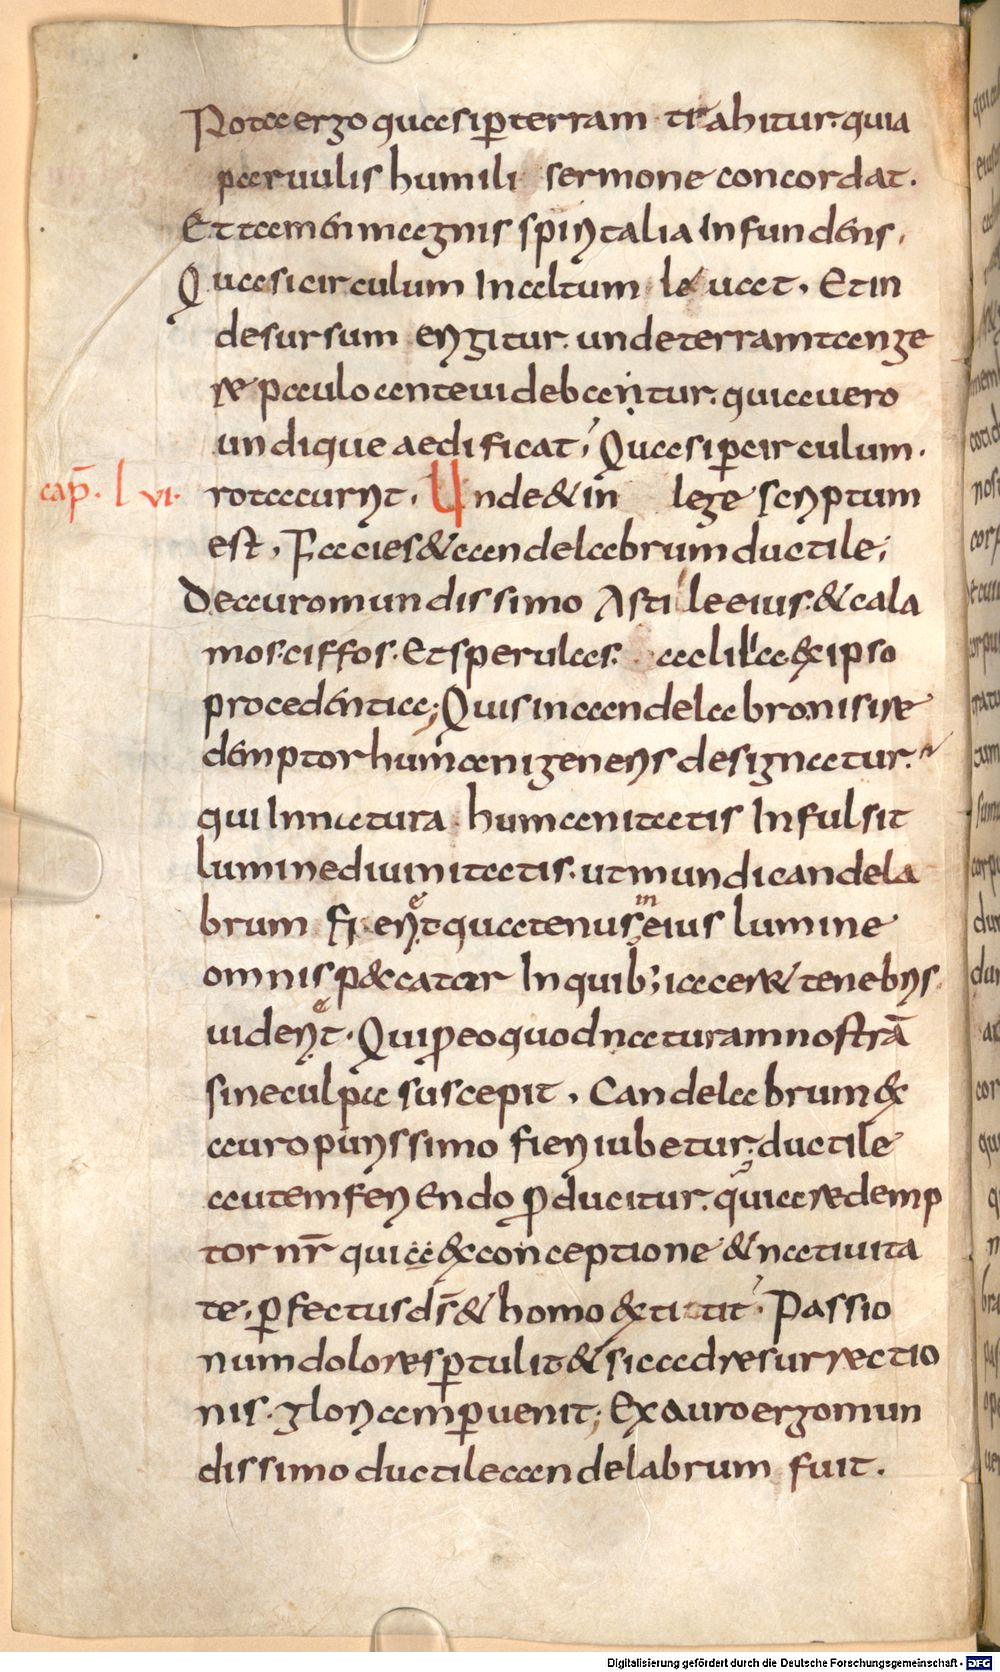 Rota ergo quasi ꝑ terram trahitur. quia
paruulis humili sermone concordat.
Et tamen magnis spiritalia Infundens,
Quasi circulum In altum leuat. Et in
de sursum erigitur. unde terram tange
re paulo ante uidebatur. quia uero
undique aedificat, Quasi ꝑ circulum.
cap̄. lvi. rota currit. Unde & in lege scriptum
est, Facies & candelabrum ductile;
De auro mundissimo Astile eius. & cala
mos. ciffos. Et sperulas. ac lilia ex ipso
procedentia; Quis in candelabro nisi re
demptor humani generis designatur.
qui In natura humanitatis Infulsit
lumine diuinitatis. ut mundi candela
brum fieret quatenus in eius lumine
omnis peccator In quib; iaceret tenebris.
uideret. Qui ꝑ eo quod naturam nostrā
sine culpa suscepit, Candelabrum ex
auro purissimo fieri iubetur. ductile
autem feriendo ꝓducitur. quia redemp
tor nr̄ qui a & conceptione & natiuita
te, ꝑfectus ds̄ & homo extitit. Passio
num dolores ꝑtulit & sic ad resurrectio
nis. gloriam ꝑuenit; Ex auro ergo mun
dissimo ductile candelabrum fuit.
Digitalisierung gefördert durch die Deutsche Forschungsgemeinschaft - DFG